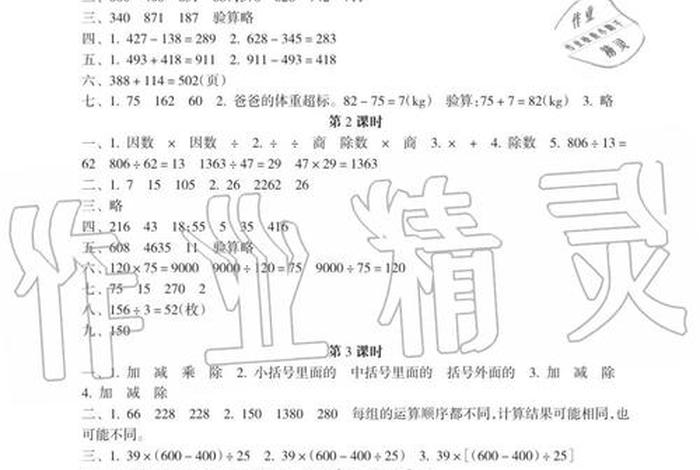 三、340 871 187 验算略
四、1. 427－138＝289 2. 628－345＝283
五、1. 493＋418＝911 2. 911－493＝418
六、388＋114＝502(页)
七、1. 75 162 60 2. 爸爸的体重超标。82－75＝7(kg) 验算:75＋7＝82(kg) 3. 略
第 2 课时
一、1. 因数 × 因数 ÷ 2. ÷ ÷ 商 除数 × 商 3. × ＋ 4. 除数 5. 806÷13＝
62 806÷62＝13 1363÷47＝29 47×29＝1363
二、1. 7 15 105 2. 26 2262 26
三、略
四、216 43 18:55 5 35 416
五、608 4635 11 验算略
六、120×75＝9000 9000÷120＝75 9000÷75＝120
七、75 15 270 2
八、156÷3＝52(枚)
九、150
第 3 课时
一、1. 加 减 乘 除 2. 小括号里面的 中括号里面的 括号外面的 3. 加 减 除
4. 加 减 除
二、1. 66 228 228 2. 150 1380 280 每组的运算顺序都不同,计算结果可能相同,也
可能不同。
三、1. 39×(600－400)÷25 2. 39×(600－400÷25) 3. 39×[(600－400)÷25]
作业精灵
作业
精灵